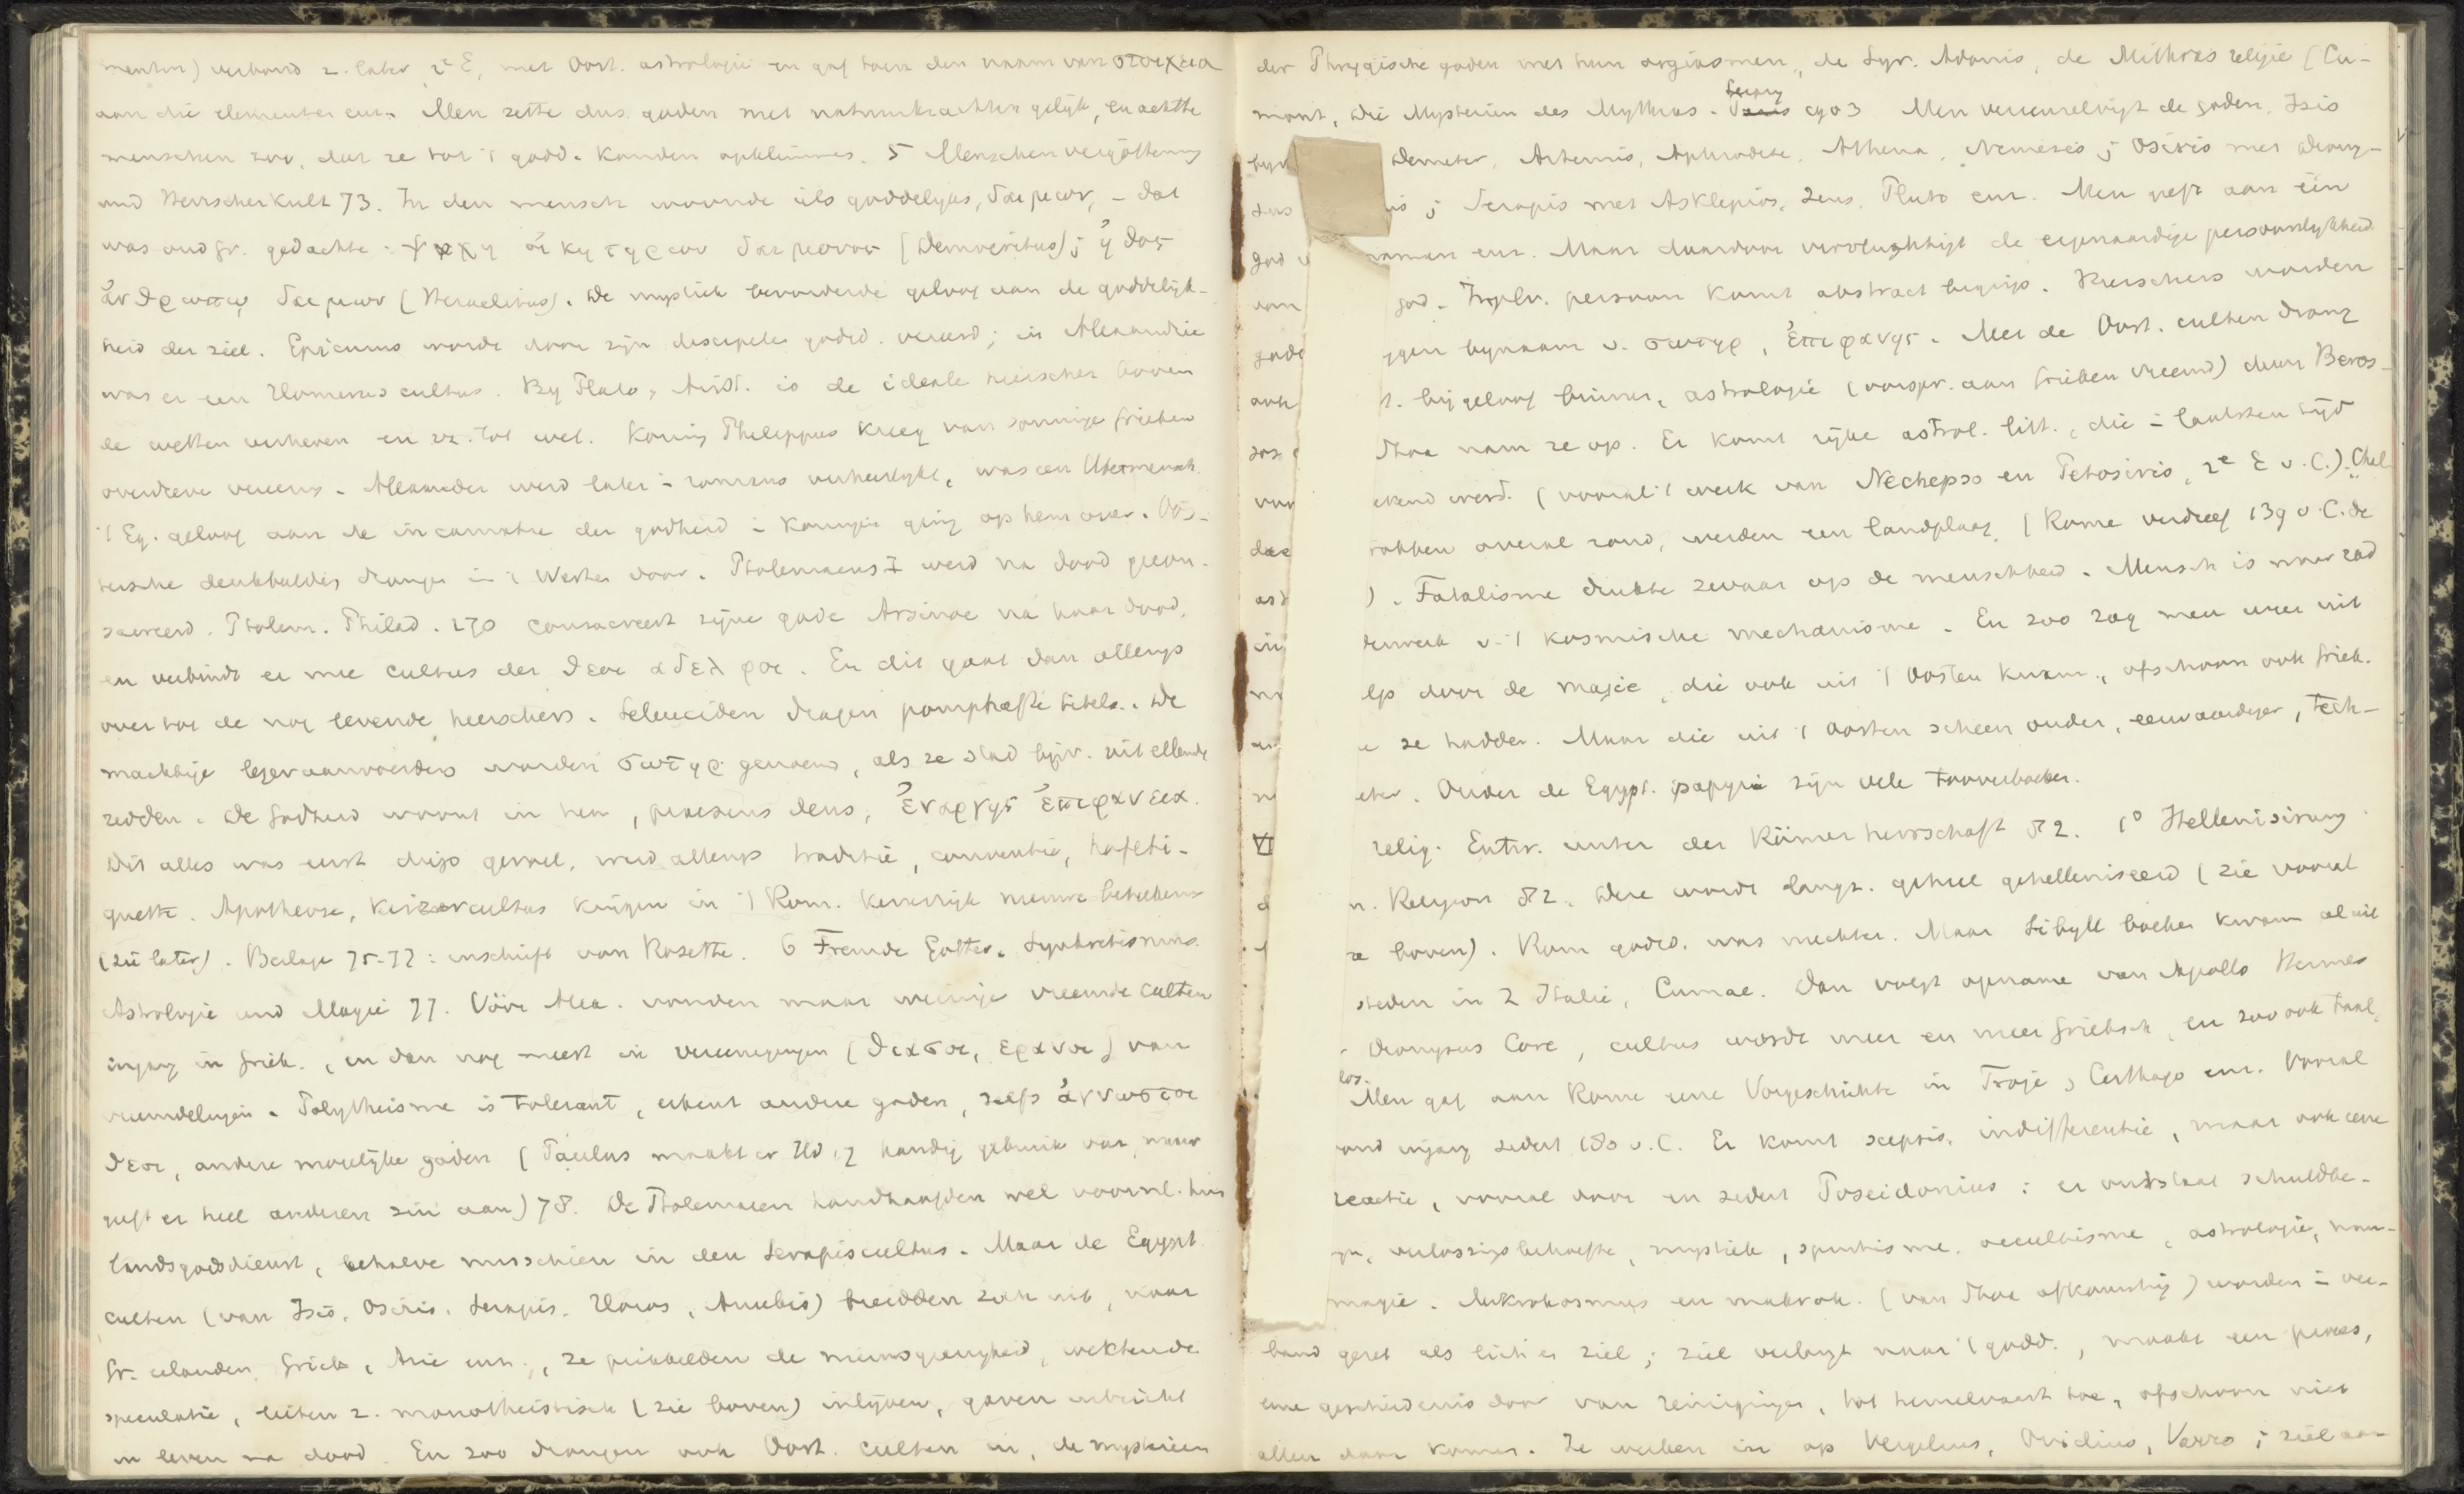 menten) verband z. later, 2e E, met Oost. astrologie en gaf toen den naam van στοιχεια
aan die elementen enz. Men zette dus goden met natuurkrachten gelijk, en achtte
menschen zoo, dat ze tot 't godd. konden opklimmen. 5 Menschenvergötterung
und Herrscherkult 73. In den mensch woonde iets goddelijks, δαιμων, - dat
was oud gr. gedachte: ψυχη οικητηριον δαιμονος (Democritus); ἠθος
ἀνθρωπῳ δαιμων (Heraclitus). De mystiek bevorderde geloof aan de goddelijk-
heid der ziel. Epicurus wordt door zijn discipelen godsd. vereerd; in Alexandrie
was er een Homerus cultus. By Plato, Arist. is de ideale heerscher boven
de wetten verheven en zz. tot wet. Koning Philippus kreeg van sommige Grieken
overdreven vereering. Alexander werd later = romans verheerlijkt, was een Übermensch.
't Eg. geloof aan de incarnatie der godheid = koningen ging op hem over. Oos-
tersche denkbeelden drongen in 't Westen door. Ptolemaeus I werd na dood geconsa-
sacreerd. Ptolem. Philad. 270 consacreert zijne gade Arsinoe na haar dood,
en verbindt er mee cultus der θεοι αδελφοι. En dit gaat dan allengs
over tot de nog levende heerschers. Seleuciden dragen pomphafte titels. De
machtige legeraanvoerders worden σωτηρ genoemd, als ze stad bijv. uit ellende
redden. De godheid woont in hen, praesens deus, ἐναργης ἐπιφανεια.
Dit alles was eerst diep gevoel, werd allengs traditie, conventie, hofeti-
quette. Apotheose, keizercultus krijgen in 't Rom. keizerrijk nieuwe beteekenis
(zie later). Beilage 75-77: inschrift van Rosette. 6 Fremde Götter. Synkretismus.
Astrologie und Magie 77. Vóór Alex. vonden maar weinige vreemde culten
ingang in Griek., en dan nog meest in vereenigingen (θιασοι, ερανοι) van
vreemdelingen. Polytheisme is tolerant, erkent andere goden, zelfs ἀγνωστοι
θεοι, andere mogelijke goden (Paulus maakt er Hd 17 handig gebruik van, maar
geeft er heel anderen zin aan) 78. De Ptolemaeen handhaafden wel voornl. hun
landsgodsdienst, behalve misschien in den Serapiscultus. Maar de Egypt.
culten (van Isis, Osiris, Serapis, Horus, Anubis) breidden zich uit, naar
Gr. eilanden, Griek., Azie enz., ze prikkelden de nieuwsgierigheid, wekten de
speculatie, lieten z. monotheistisch (zie boven) inlijven, gaven uitzicht
in leven na dood. En zoo drongen ook Oost. culten in, de mysterien
der Phrygische goden met hun orgiasmen, de Syr. Adonis, de Mithras religie (Cu-
mont, Die Mysterien des Mythras. 1903 Men vereenzelvigt de goden, Isis
Demeter, Artemis, Aphrodite, Athena, Nemesis; Osiris met Diony-
Serapis met Asklepios, Zeus, Pluto enz. Men geeft aan één
god namen enz. Maar daardoor vervluchtigt de eigenaardige persoonlijkheid
god. In pl. v. persoon komt abstract begrip. Heerschers worden
bijnaam v. σωτηρ, ἐπιφανης. Met de Oost. culten drong
bijgeloof binnen, astrologie (oorspr. aan Grieken vreemd) door Beros-
Stoa nam ze op. Er komt rijke astrol. litt., die = laatsten tijd
bekend werd. (vooral 't werk van Nechepso en Petosiris, 2e E v. C.). Chal-
trokken overal rond, werden een landplaag. (Rome verdreef 139 v. C. de
). Fatalisme drukte zwaar op de menschheid. Mensch is maar rad
v. 't kosmische mechanisme. En zoo zag men weer uit
door de magie, die ook uit 't Oosten kwam, ofschoon ook Griek.
ze hadden. Maar die uit 't Oosten scheen ouder, eerwaardiger, tech-
Onder de Egypt. papyri zijn vele tooverboeken.
VI relig. Entw. unter der Römerherrschaft 82. 1º Hellenisirung
Religion 82. Deze wordt langz. geheel gehelleniseerd (zie vooral
boven). Rom. godsd. was nuchter. Maar Sibyll boeken kwam al uit
steden in Z Italie, Cumae. Dan volgt opname van Apollo Hermes
Dionysus Core, cultus wordt meer en meer Grieksch, en zoo ook taal,
Men gaf aan Rome eene Vorgeschichte in Troje, Carthago enz. Vooral
ingang sedert 180 v. C. Er komt scepsis, indifferentie, maar ook eene
reactie, vooral door en sedert Poseidonius: er ontstaat schuldbe-
verlossingsbehoefte, mystiek, spiritisme, occultisme, astrologie, man-
magie. Mikrokosmus en makrok. (van Stoa afkomstig) worden = ver-
band gezet als lich. en ziel; ziel verlangt naar 't godd., maakt een proces,
eene geschiedenis door van reinigingen, tot hemelvaart toe, ofschoon niet
allen daar komen. Ze werken in op Vergilius, Ovidius, Varro; ziel aa-